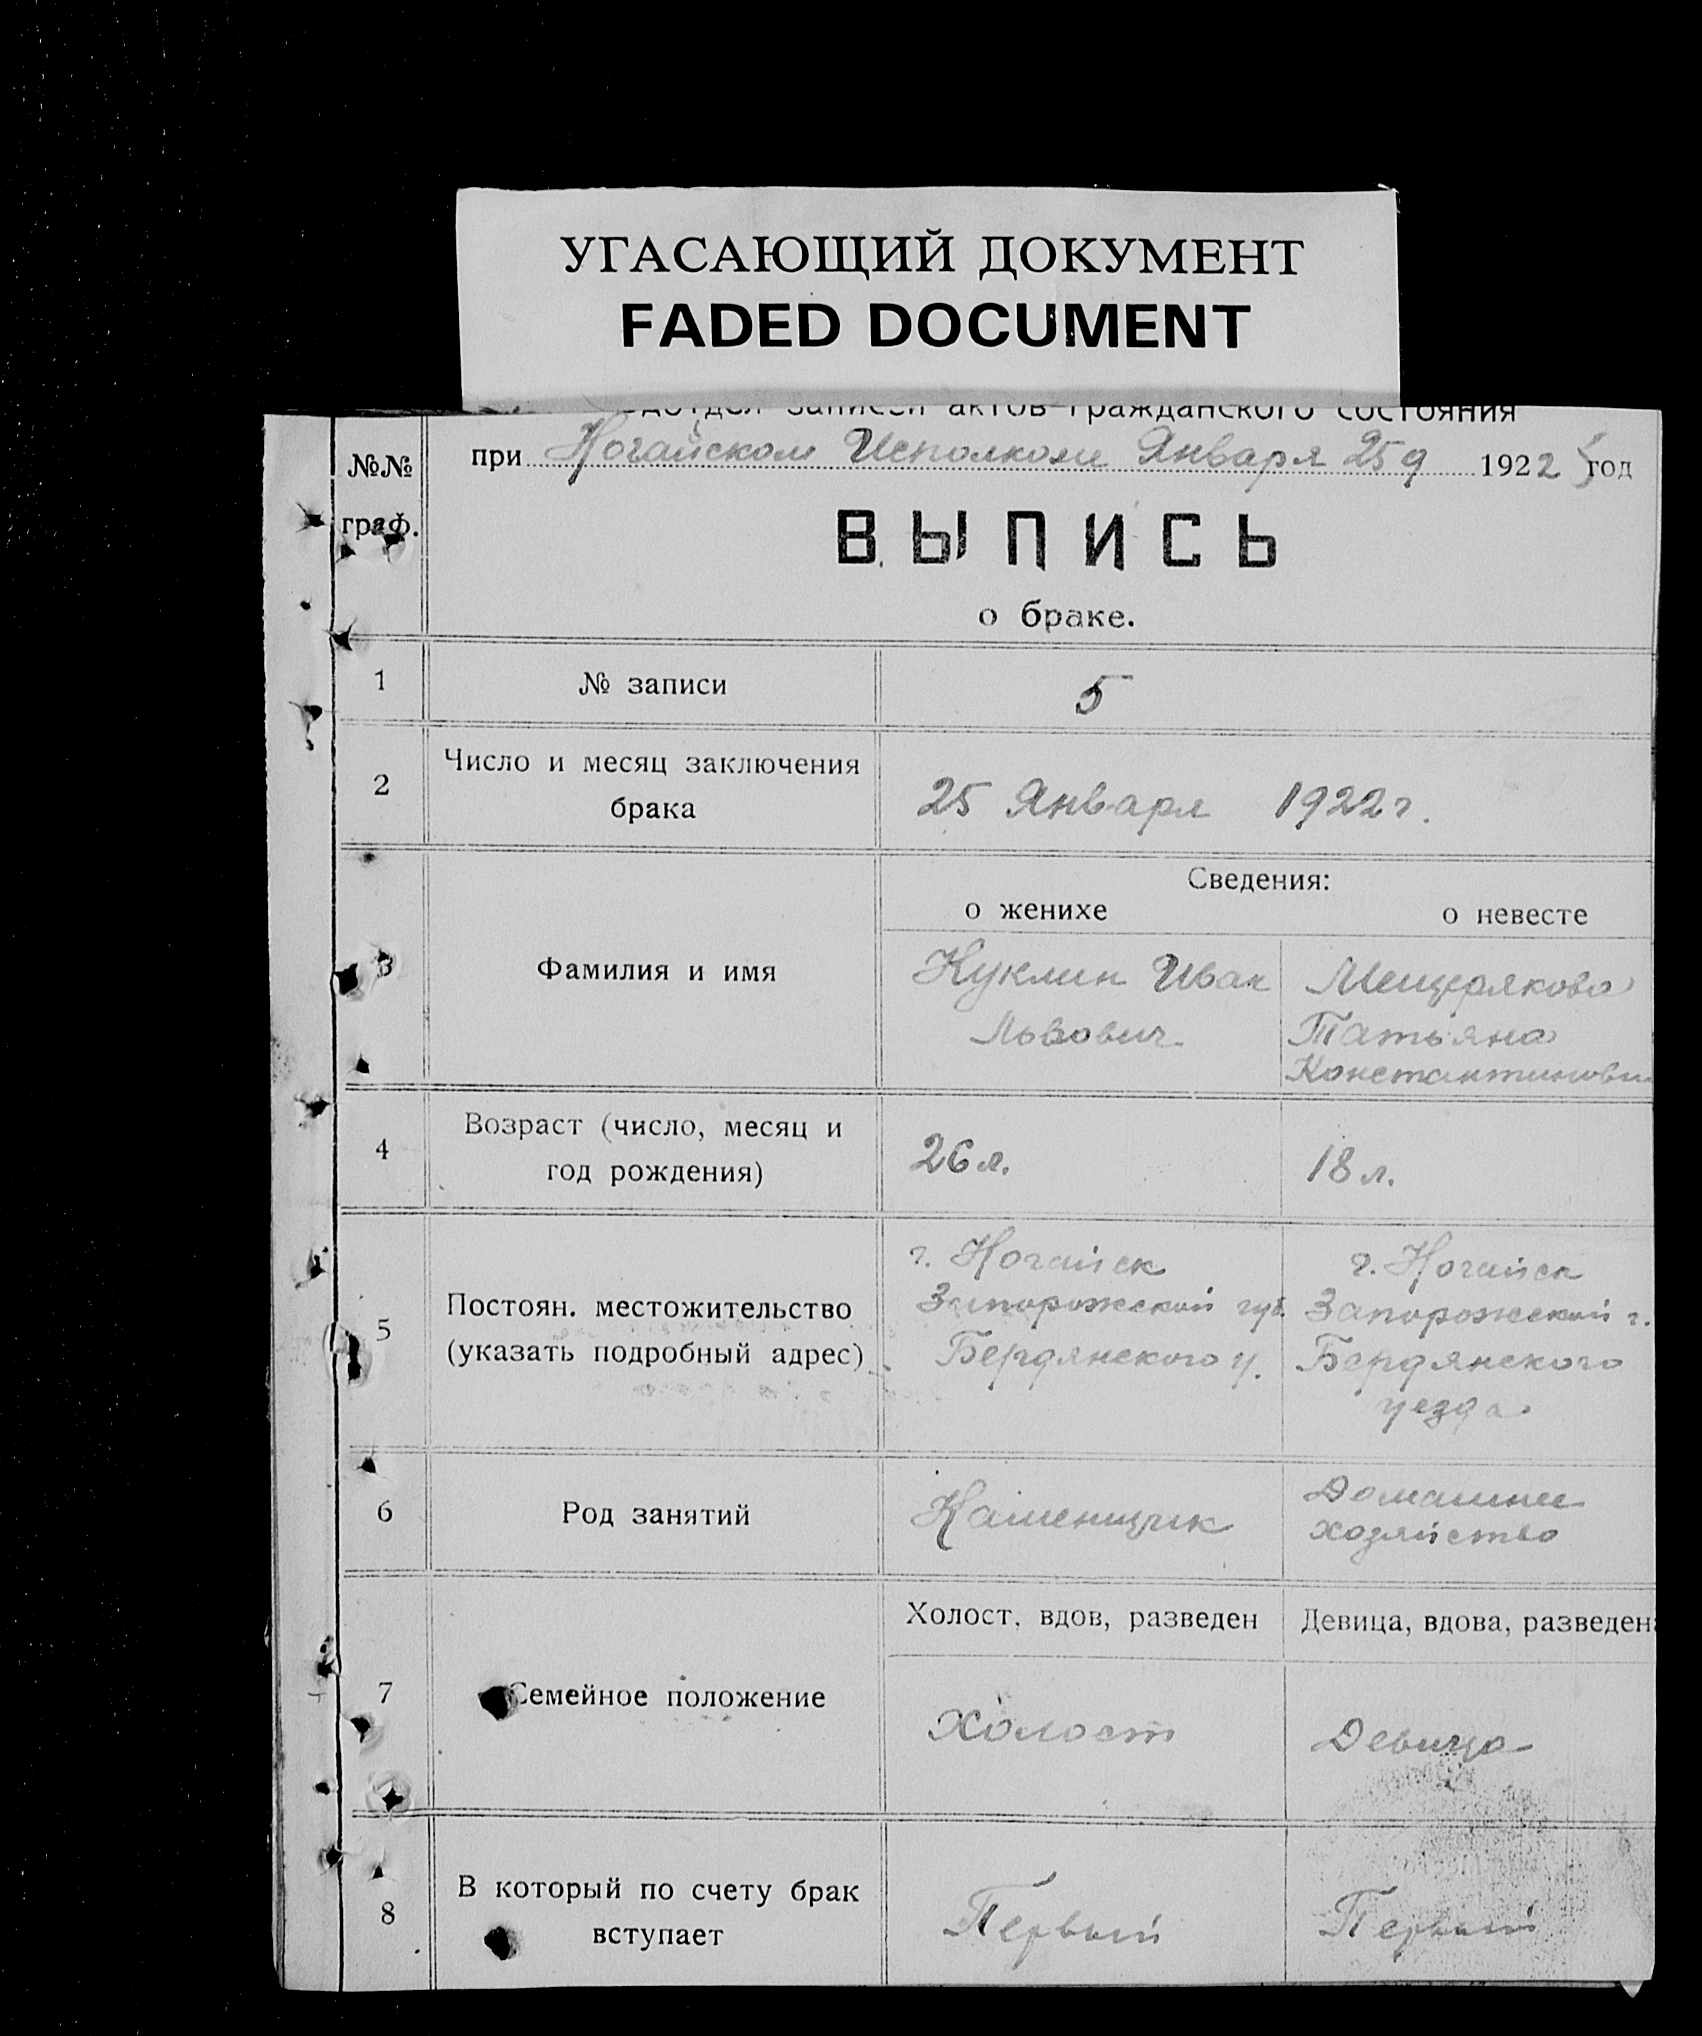 УГАСАЮЩИЙ ДОКУМЕНТ
FADED DOCUMENT
записей актов гражданского состояния
№№ граф.
при Ногайском Исполкоме Января 25 д 1922 год
ВЫПИСЬ
о браке.
1 № записи 5
2 Число и месяц заключения
брака
25 Января 1922 г.
Сведения:
о женихе о невесте
3 Фамилия и имя
Куклин Иван
Львович
Мещерякова
Татьяна
Константиновн
4 Возраст (число, месяц и
год рождения)
26 л. 18 л.
5 Постоян. местожительство
(указать подробный адрес)
г. Ногайск
Запорожской губ.
Бердянского у.
г. Ногайск
Запорожской г.
Бердянского
уезда.
6 Род занятий
Каменщик
Домашнее
хозяйство
Холост, вдов, разведен Девица, вдова, разведена
7 Семейное положение
Холост Девица
8 В который по счету брак
вступает
Первый Первый